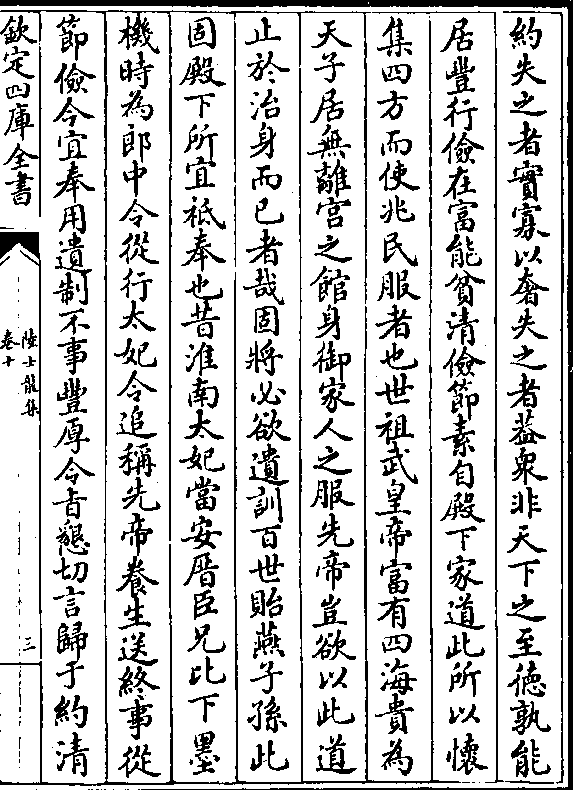 約失之者實寡以奢失之者葢衆非天下之至徳孰能
居豐行儉在富能貧清儉節素自殿下家道此所以懷
集四方而使兆民服者也世祖武皇帝富有四海貴為
天子居無離宫之館身御家人之服先帝豈欲以此道
止於治身而已者哉固將必欲遺訓百世貽燕子孫此
固殿下所宜祗奉也昔淮南太妃當安厝臣兄比下墨
機時為郎中令從行太妃令追稱先帝養生送終事從
節儉今宜奉用遺制不事豐厚令旨懇切言歸于約清
欽定四庫全書
陸士龍集
卷十
三